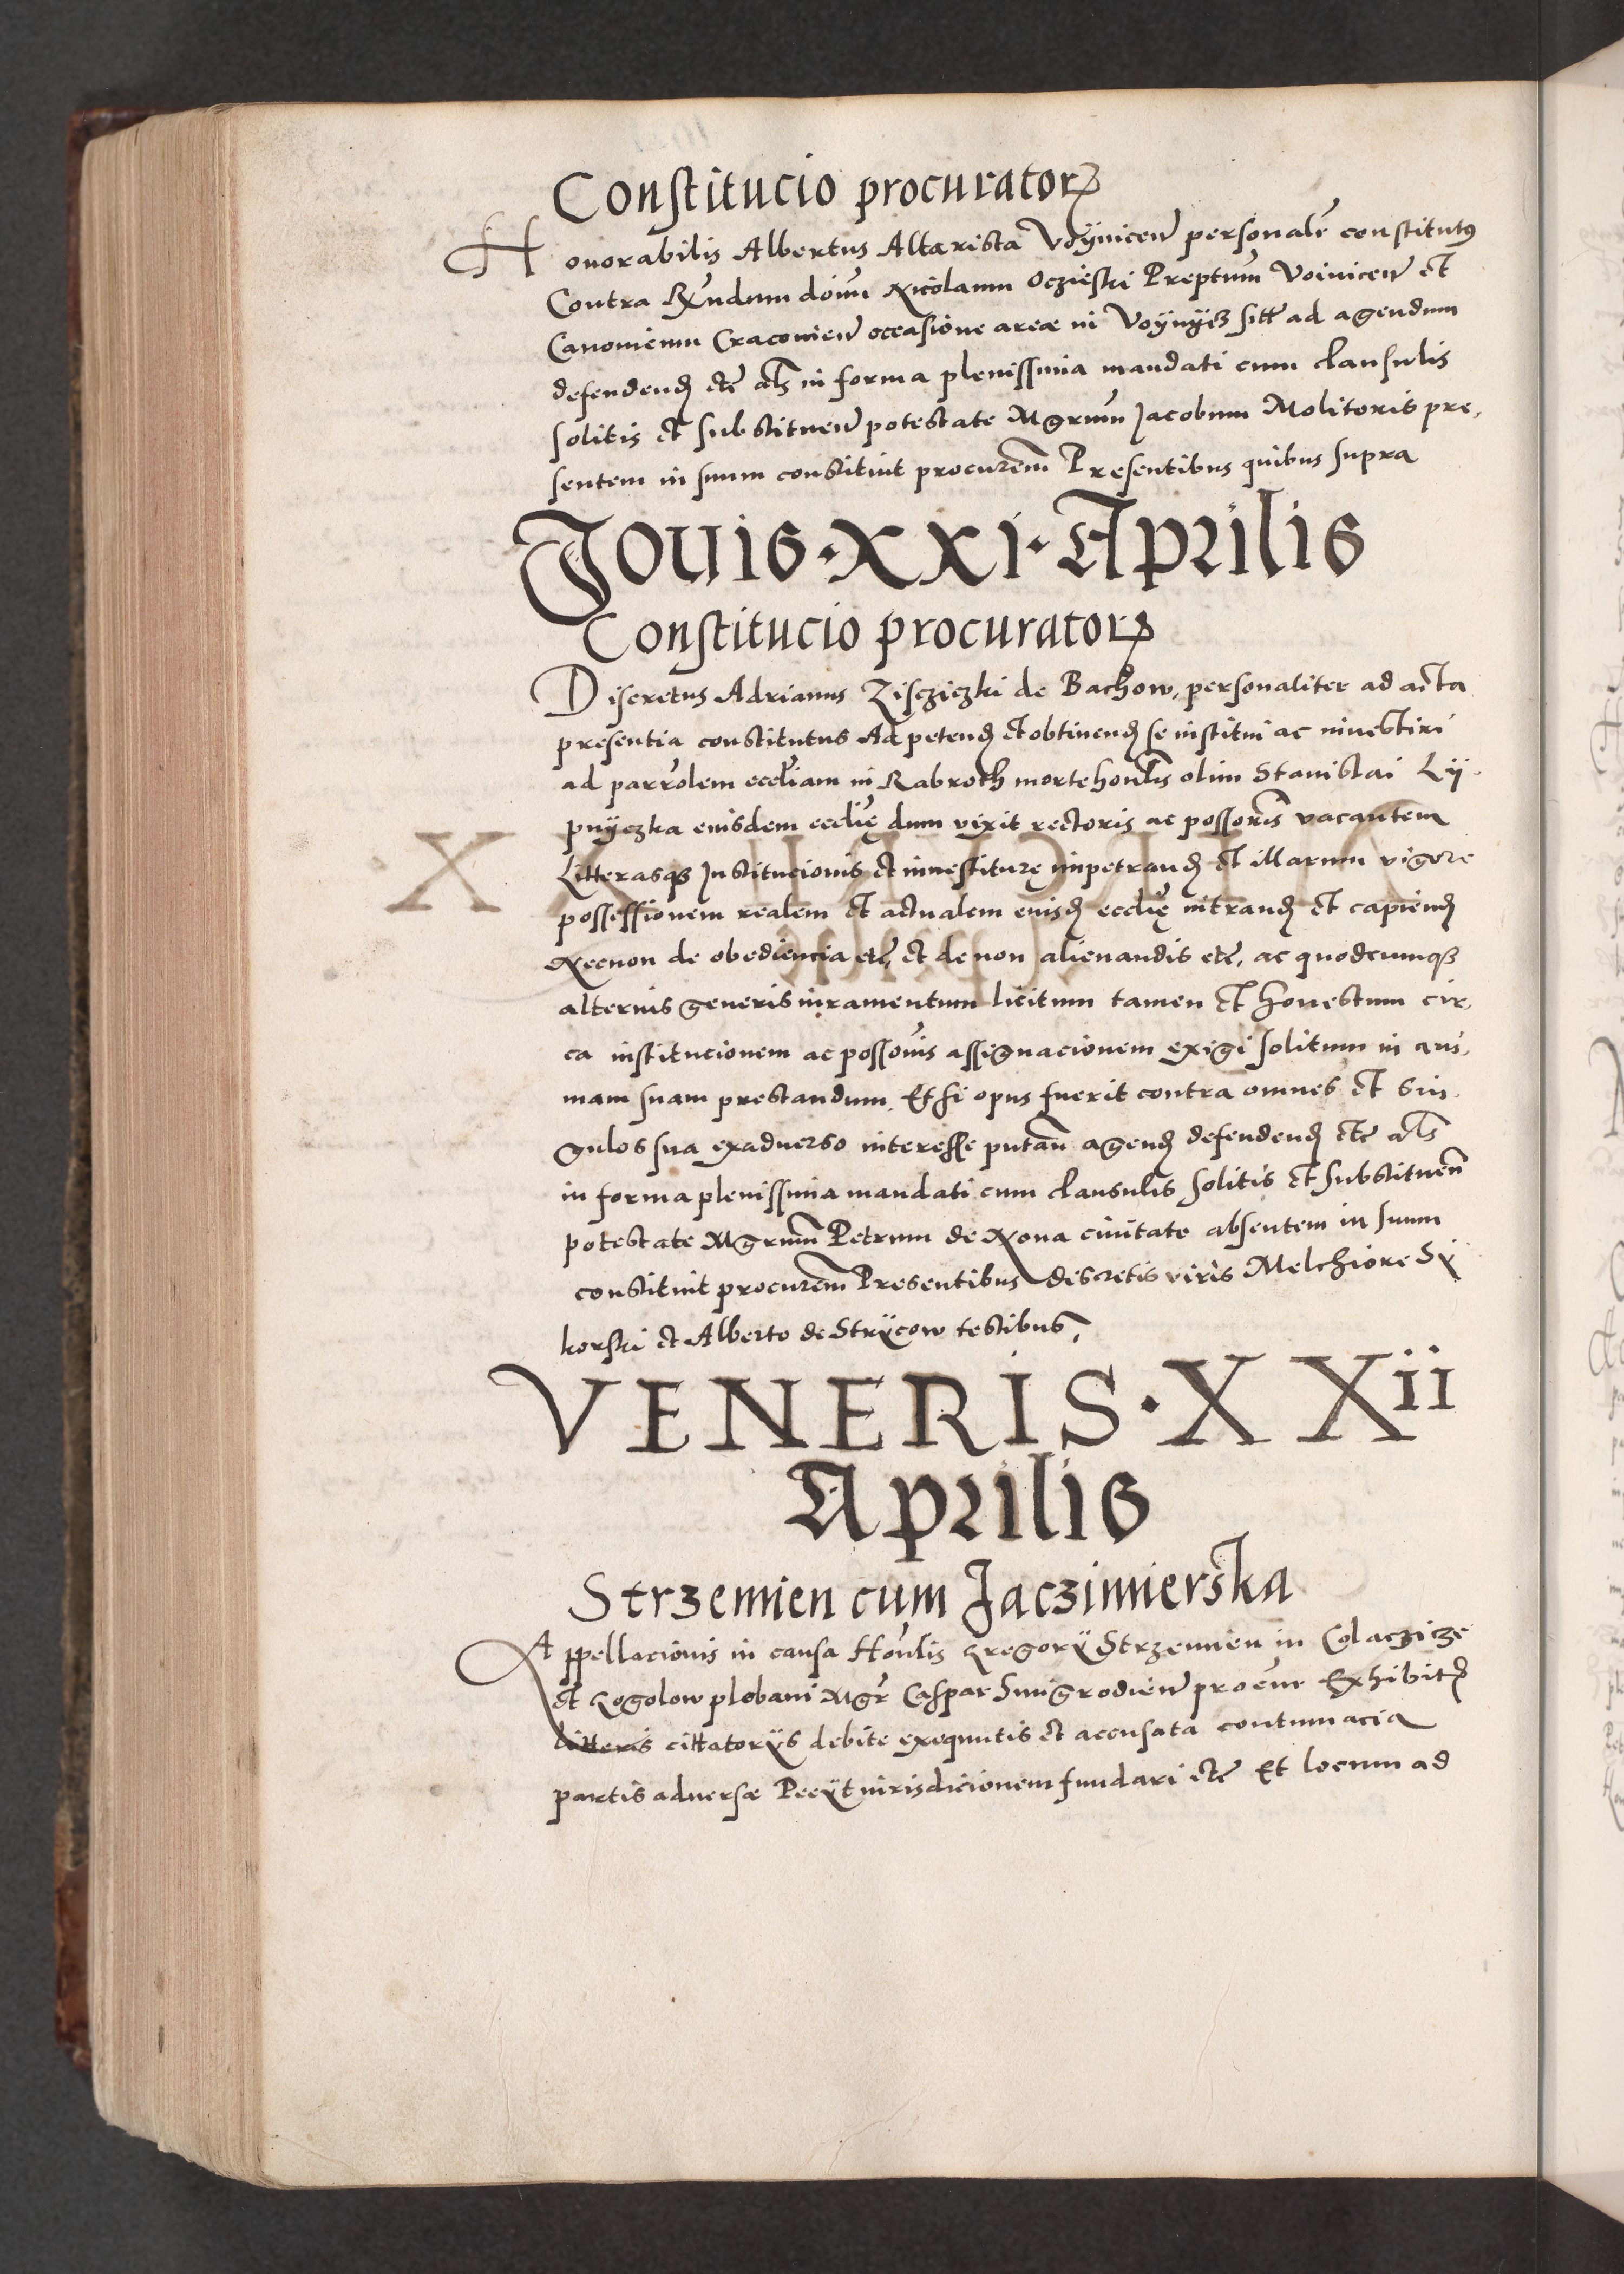 Constitucio procuratorꝝ
Honorabilis Albertus Altarista Voÿnicen̄ personalr̄ constitutꝯ
Contra Rn̄dum doim̄ Nicolaum Oczieski Preptum̄ Voinicen̄ et
Canonicum Cracouien̄ occasione areæ in Voÿnÿcz sitt̄ ad agendum
defendend̄ etc̄ als̄ in forma plenissima mandati cum clausulis
solitis et substituen̄ potestate Mgrum̄ Jacobum Molitoris pre,
sentem in suum constituit procurem̄ Presentibus quibus supra
Jouis · xxi · Aprilis
Constitucio procuratorꝝ
Discretus Adrianus Ziscziczki de Bachow, personaliter ad acta
presentia constitutus Ad petend̄ et obtinend̄ se institui ac inuestiri
ad parrolem eccliam̄ in Rabroth morte honlis̄ olim Stanislai Lÿ,
pnÿczka eiusdem ecclię dum vixit rectoris ac possoris̄ vacantem
Litterasqꝫ Institucionis et inuestiturę impetrand̄ et illarum vigore
possessionem realem et actualem eiusd̄ ecclię intrand̄ et capiend̄
Necnon de obediencia etc̄, et de non alienandis etc̄, ac quodcumqꝫ
alterius generis iuramentum licitum tamen et honestum cir,
ca institucionem ac possonis̄ assignacionem exigi solitum in ani,
mam suam prestandum. Et si opus fuerit contra omnes et sin,
gulos sua exaduerso interesse putan̄ agend̄ defendend̄ etc̄ als̄
in forma plenissima mandati cum clausulis solitis et substituen̄
potestate Mgrum̄ Petrum de Noua ciuitate absentem in suum
constituit procurem̄ Presentibus discretis viris Melchiore Sÿ
korski et Alberto de Strÿcow testibus,
VENERIS · XXii
Aprilis
Strzemien cum Jaczimierska
Appellacionis in causa Honlis̄ Gregorÿ Strzemien in Colaczicze
et Gogolow plebani Mgr̄ Caspar Smigrodien̄ procur̄ Exhibitꝭ
litteris cittatorÿs debite exequutis et accusata contumacia
partis aduersæ Peeÿt iurisdicionem fundari etc̄ Et locum ad